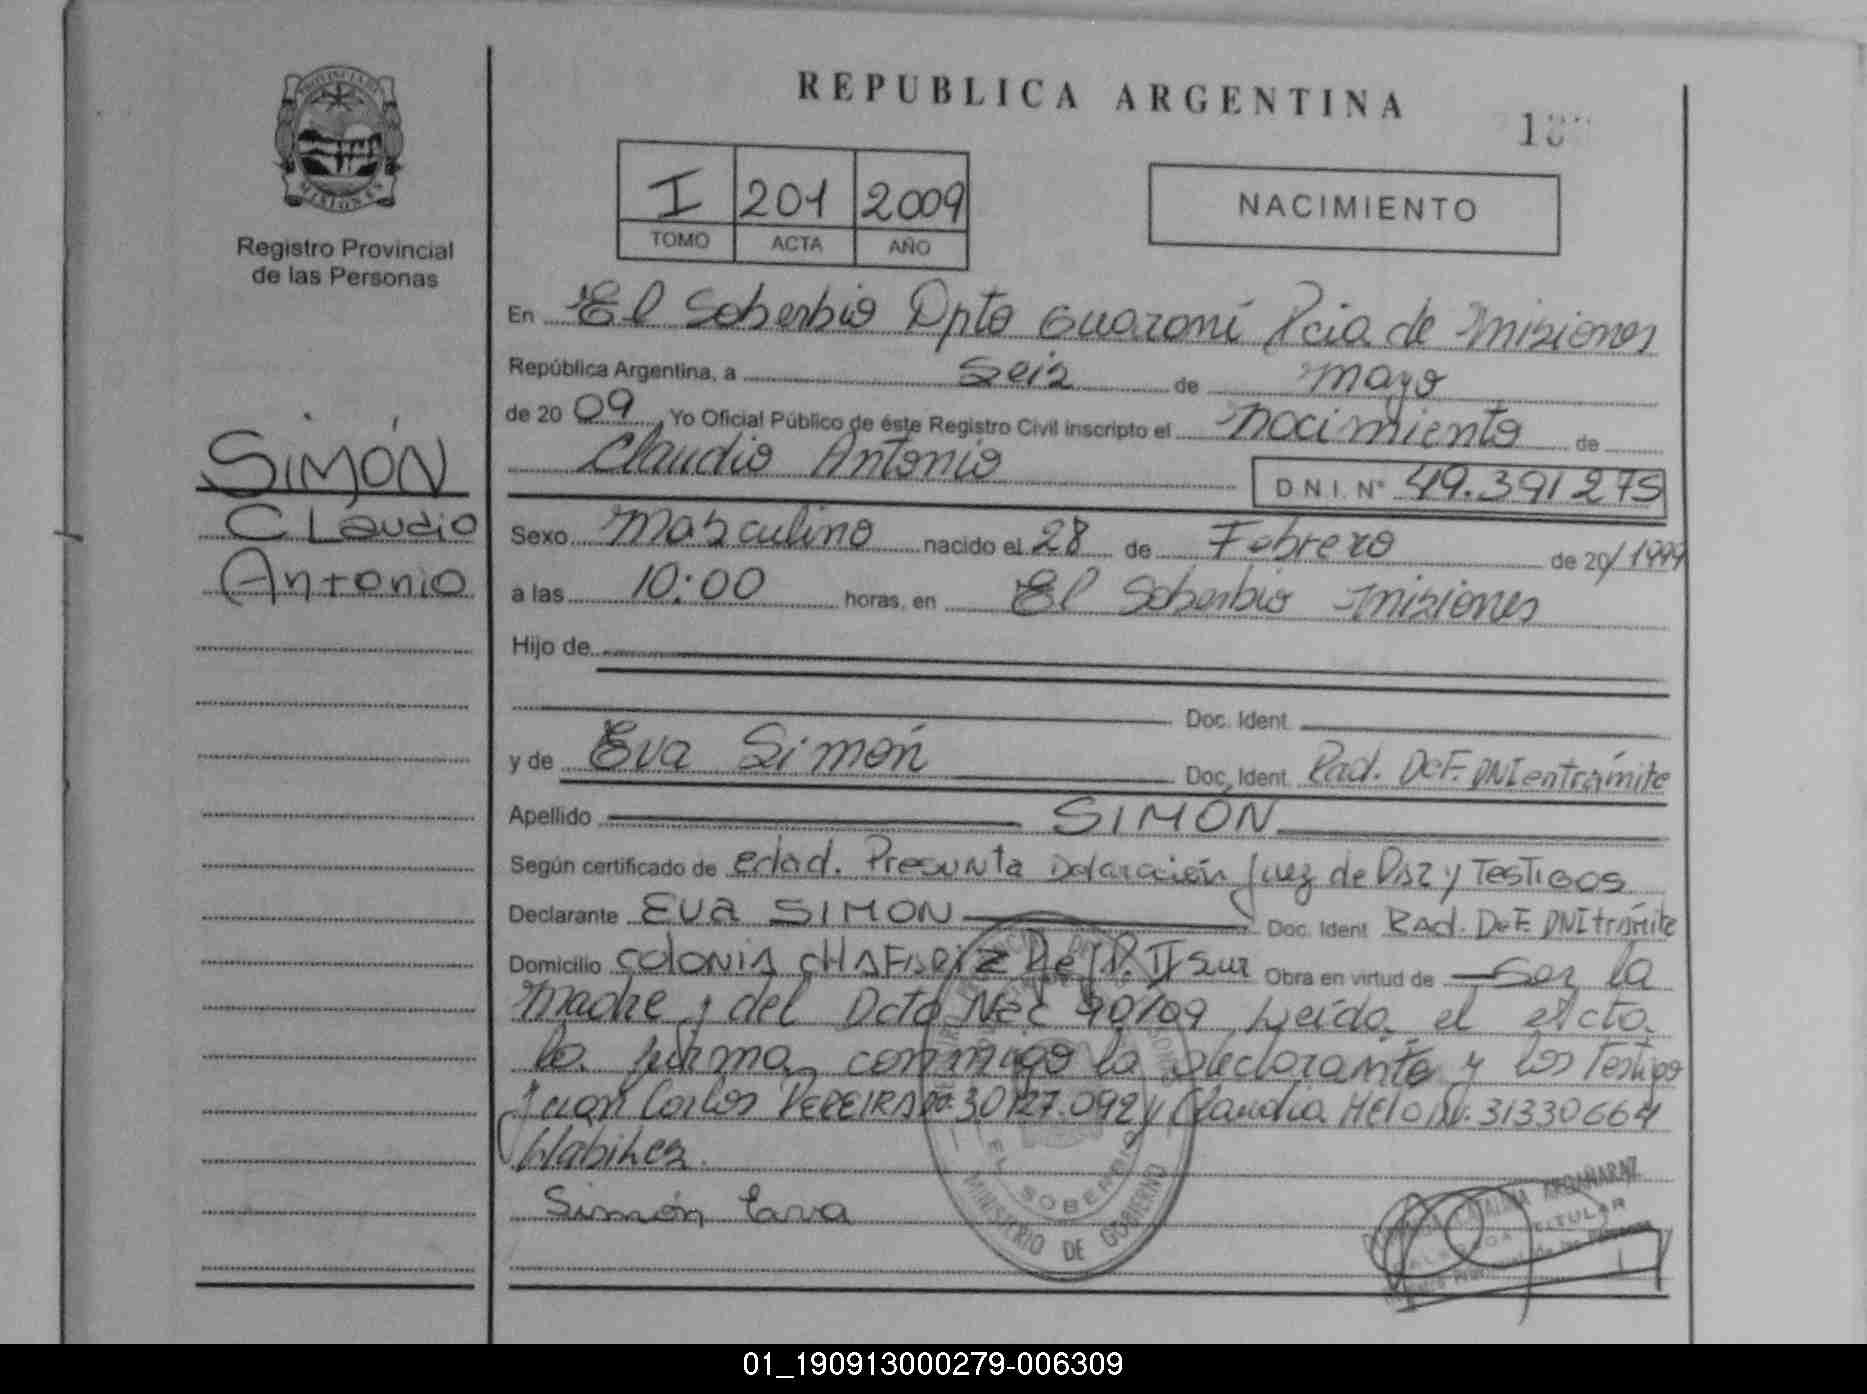 PROVINCIA DE
MISIONES
Registro Provincial
de las Personas
SIMÓN
CLaudio
Antonio
REPUBLICA ARGENTINA
I 201 2009
TOMO ACTA AÑO
NACIMIENTO
En El Soberbio Dpto Guaraní Pcia de Misiones
República Argentina, a Seis de mayo
de 20 09 Yo Oficial Público de éste Registro Civil inscripto el nacimiento de
Claudio Antonio D.N.I. Nº 49.391275
Sexo masculino nacido el 28 de Febrero de 20/1999
a las 10:00 horas, en El Soberbio misiones
Hijo de
Doc. Ident.
y de Eva Simón Doc. Ident. Rad. Def. DNI en trámite
Apellido SIMÓN
Según certificado de edad. Presunta Declaración Juez de Paz y TESTIGOS
Declarante EVA SIMON Doc. Ident RAd. DeF. DNI trámite
Domicilio COLONIA Km II Sur Obra en virtud de Ser la
madre y del Dcto 90/09 Leída el acta
la firma conmigo la declarante y los Testigo
Juan Carlos PEREIRA 30127.092 y Claudia MELO 31330664
Habiles.
Simón Eva
EL SOBERBIO
MINISTERIO DE GOBIERNO
ARGAÑARAZ
TITULAR
01_190913000279-006309